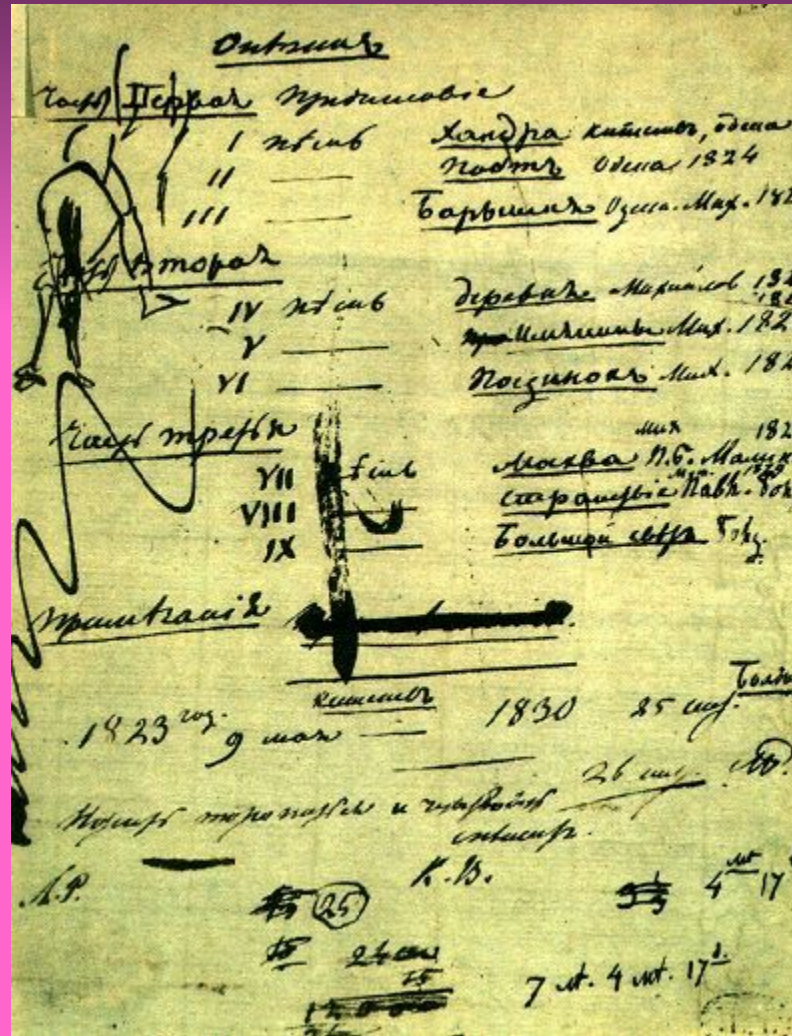 Онѣгинъ
Часть Первая Предисловіе
I пѣснь Хандра Кишеневъ, Одесса
II —— Поэтъ Одесса 1824
III —— Барышня Одесса. Мих. 182
Часть Вторая
IV пѣснь Деревня Михайлов. 182
V —— Имянины Мих. 182
VI —— Поединокъ Мих. 182
Часть третья
Мих 182
VII пѣснь Москва П.Б. Малин
VIII —— Странствіе Павл. Бол
IX —— Большой свѣтъ Болд.
Примѣчанія
Болди
1823 год. 9 мая Кишеневъ —— 1830 25 сен.
26 сен. АП.
И жить торопится и чувствовать
спѣшитъ.
К. В.
25
4 мѣ 17
7 лѣт. 4 мѣ. 17 д.